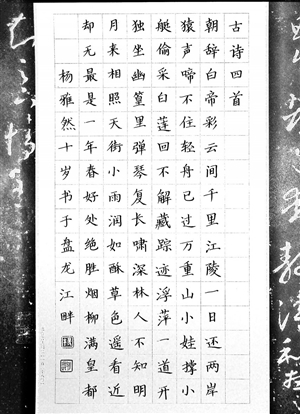 古诗四首
朝辞白帝彩云间千里江陵一日还两岸
猿声啼不住轻舟已过万重山小娃撑小
艇偷采白莲回不解藏踪迹浮萍一道开
独坐幽篁里弹琴复长啸深林人不知明
月来相照天街小雨润如酥草色遥看近
却无最是一年春好处绝胜烟柳满皇都
杨雅然十岁书于盘龙江畔